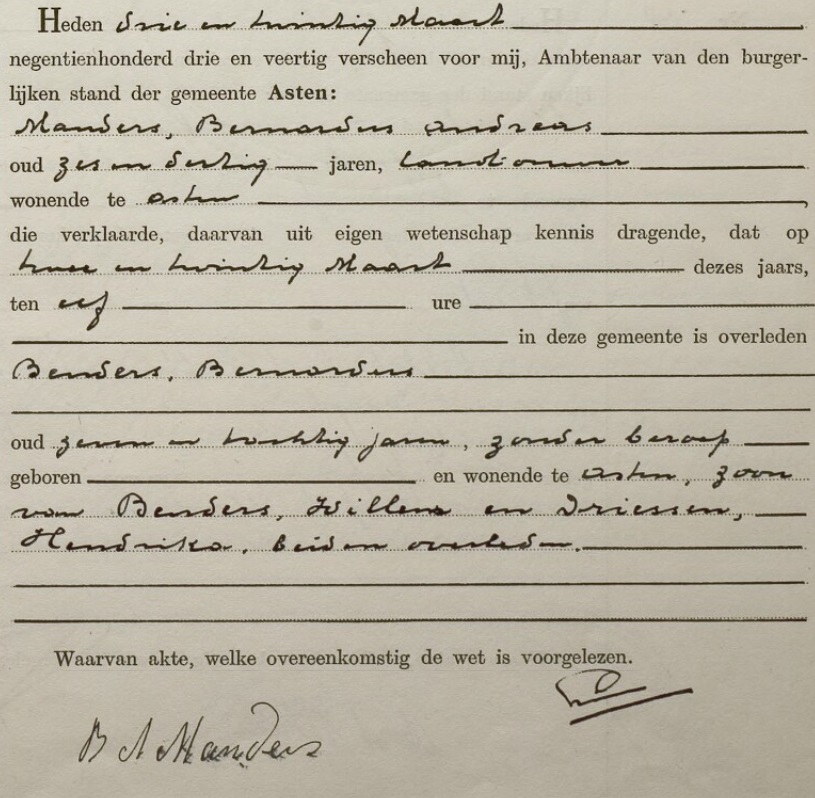 Heden drie en twintig Maart
negentienhonderd drie en veertig verscheen voor mij, Ambtenaar van den burger-
lijken stand der gemeente Asten:
Manders, Bernardus Andreas
oud zes en dertig jaren, landbouwer
wonende te Asten
die verklaarde, daarvan uit eigen wetenschap kennis dragende, dat op
twee en twintig Maart dezes jaars,
ten elf ure
in deze gemeente is overleden
Benders, Bernardus
oud zeven en tachtig jaren, zonder beroep
geboren en wonende te Asten, zoon
van Benders, Willem en Driessen,
Hendrika, beiden overleden.
Waarvan akte, welke overeenkomstig de wet is voorgelezen.
B A Manders